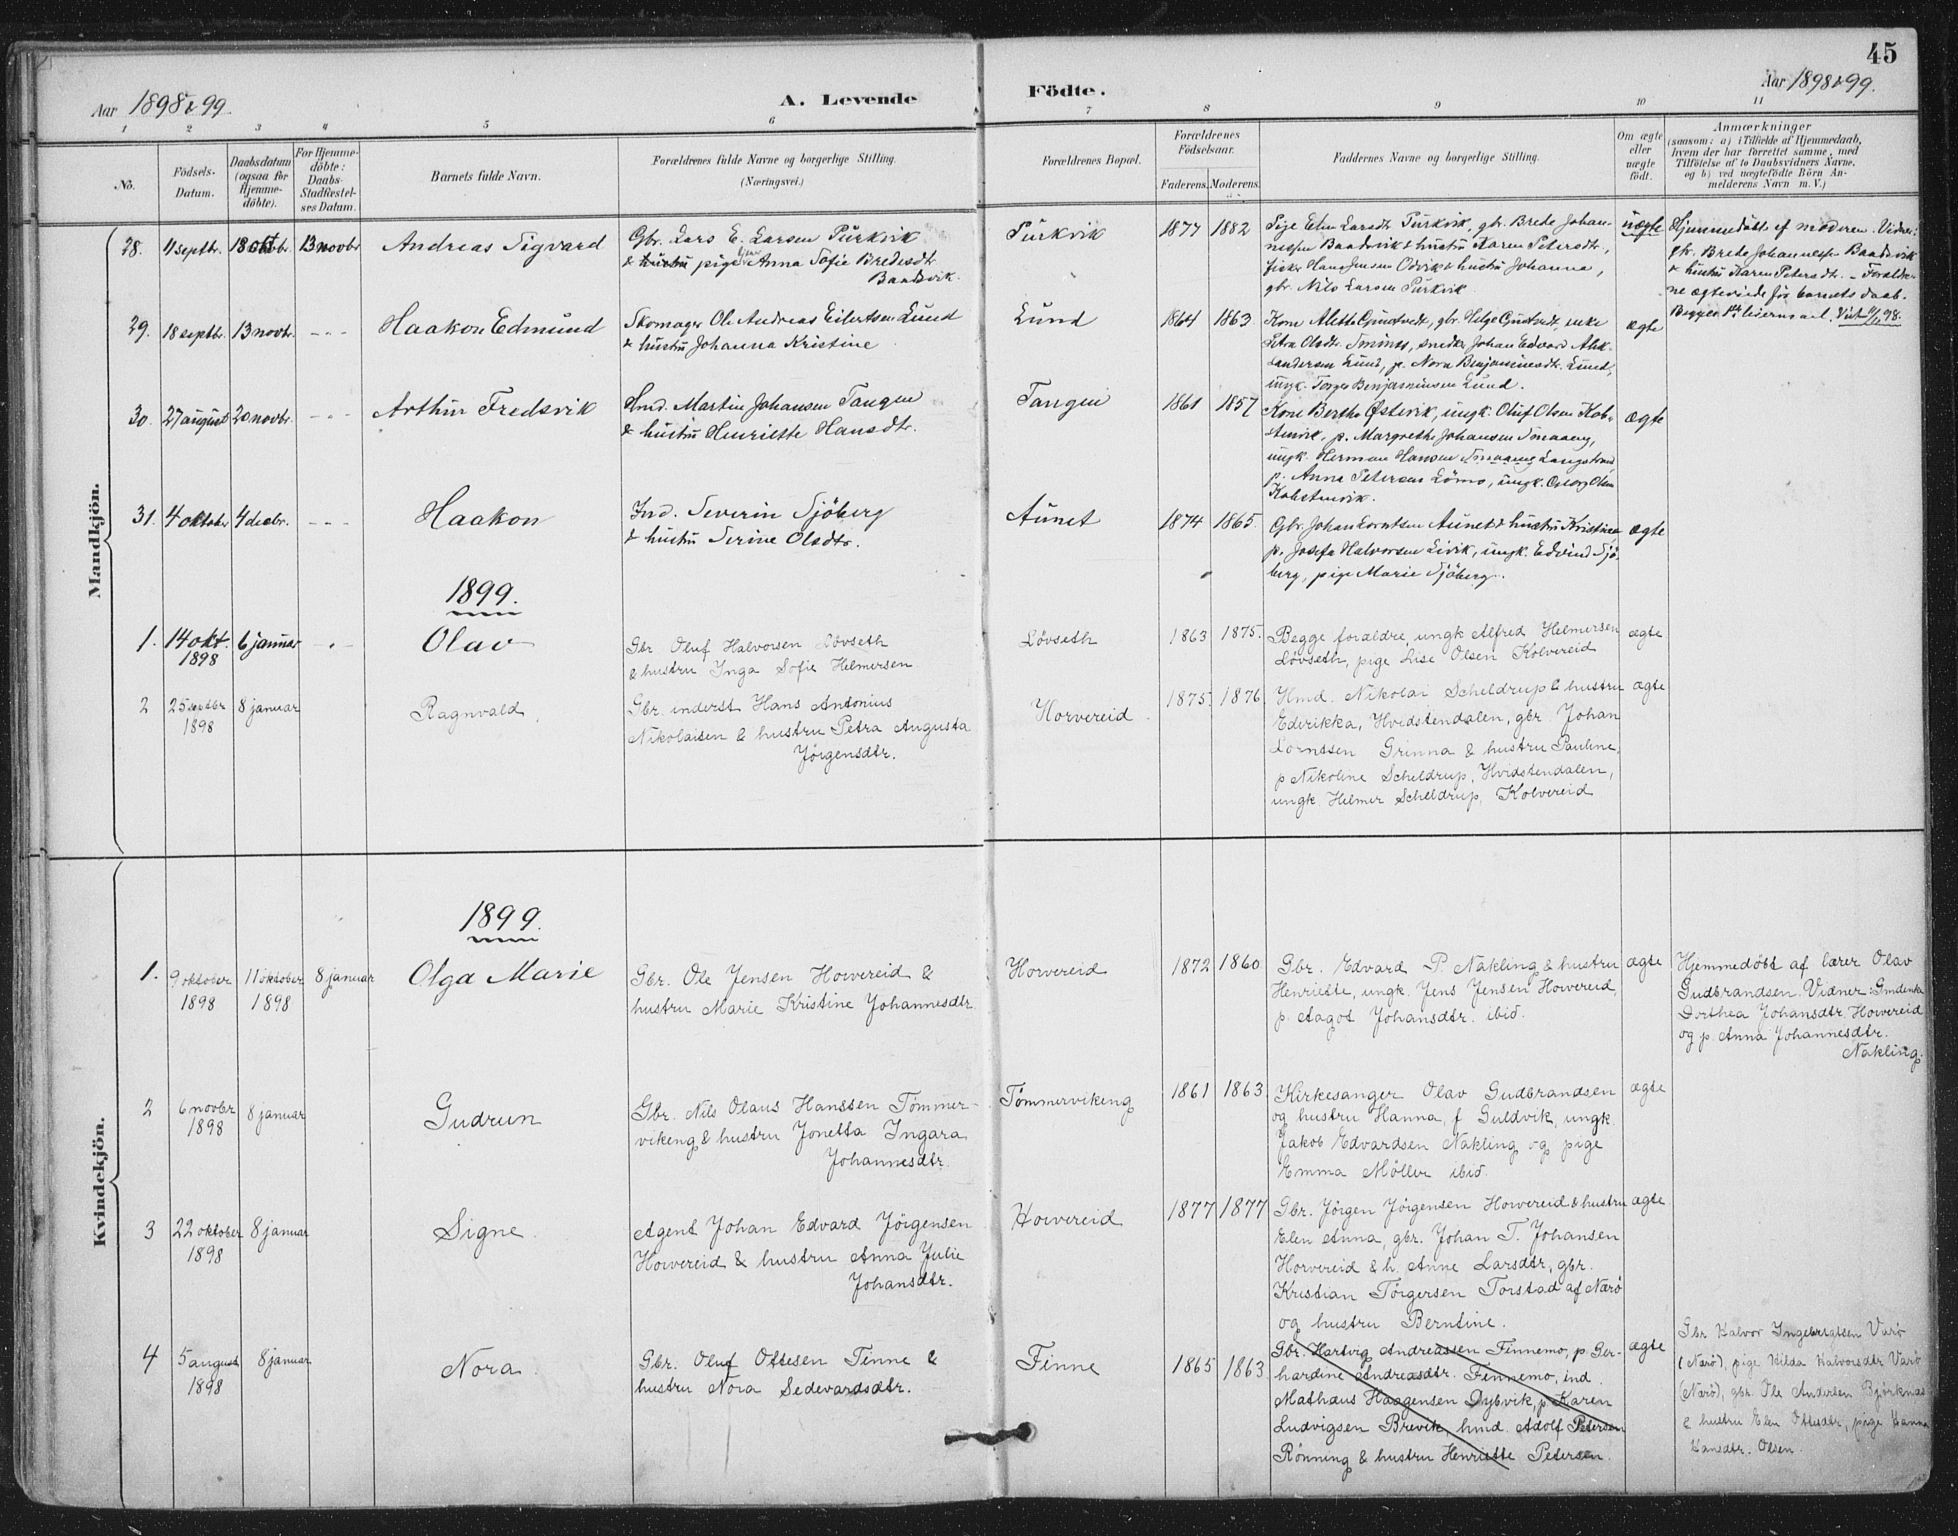 45
Aar 1898 & 99.
A. Levende
Födte.
Aar 1898 & 99.
1 2 3 4 5 6 7 8 9 10 11
No.
Födsels-
Datum.
Daabsdatum
(ogsaa for
Hjemme-
döbte).
For Hjemme-
döbte:
Daabs-
Stadfæstel-
ses Datum.
Barnets fulde Navn.
Forældrenes fulde Navne og borgerlige Stilling.
(Næringsvei.)
Forældrenes Bopæl.
Forældrenes
Födselsaar.
Faderens. Moderens.
Faddernes Navne og borgerlige Stilling.
Om ægte
eller
uægte
födt.
Anmærkninger
(saasom: a) i Tilfælde af Hjemmedaab,
hvem der har forrettet samme, med
Tilföielse af to Daabsvidners Navne,
og b) ved uægtefödte Börn An-
melderens Navn m. V.)
Mandkjön.
28. 4 septbr. 18 oktbr. 13 novbr. Andreas Sigvard
Gbr. Lars E. Larsen Purkvik
& hustru pige Anna Sofie Bredesdtr.
Baadsvik.
Purkvik 1877 1882
Pige Elen Larsdtr. Purkvik, gbr. Brede Johan-
nessen Baadsvik & hustru Karen Petersdtr.,
fisker Hans Jensen Odvik & hustru Johanna,
gbr. Nils Larsen Purkvik.
uægte
Hjemmedöbt af moderen. Vidner:
gbr. Brede Johannessen Baadsvik
& hustru Karen Petersdtr. – Foreldre-
ne ægteviede før barnets daab.
Begges 1ste leiermaal.
29. 18 septbr. 13 novbr. – " – Haakon Edmund
Skomager Ole Andreas Eilertsen Lund
& hustru Johanna Kristine
Lund 1864 1863.
Kone Alette Gjustvedt, gbr. Helge Gjustvedt, enke
Petra Olsdtr. Smines, snedker Johan Edvard Alek-
sandersen Lund, p. Nora Benjaminsdtr. Lund,
ungk. Torger Benjaminsen Lund.
ægte
30. 27 august 20 novbr. – " – Arthur Fredsvik
Hmd. Martin Johansen Tangen
& hustru Henriette Hansdtr.
Tangen 1861 1857
Kone Berthe Østervik, ungk. Oluf Olsen Kob-
stenvik, p. Margrethe Johansen Smaaeng,
ungk. Herman Hansen Smaaeng Langstrand
p. Anna Petersen Lömo, ungk. Georg Olsen
Kobstenvik.
ægte
31. 4 oktober 4 decbr. – " – Haakon
Ind. Severin Sjöberg
& hustru Serine Olsdtr.
Aunet 1874 1865
Gbr. Johan Lorntsen Aunet & hustru Kristine
p. Josefa Halvorsen Livik, ungk. Edvind Sjö-
berg, pige Marie Sjöberg.
ægte
1899.
1. 14 okt. 6 januar – " – Olav
1898
Gbr. Oluf Halvorsen Løvseth
& hustru Inga Sofie Helmersen
Løvseth 1863 1875.
Begge foraldre, ungk Alfred Helmersen
Løvseth, pige Lise Olsen Kolvereid
ægte
2 25 septbr 8 januar Ragnvald.
1898
Gbr. inderst Hans Antonius
Nikolaisen & hustru Petra Augusta
Jørgensdtr.
Horvereid. 1875. 1876
Hmd. Nikolai Scheldrup & hustru
Ederikka, Hvidstendalen, gbr. Johan
Lornssen Grinna & hustru Pauline,
p Nikoline Scheldrup, Hvidstendalen,
ungk. Helmer Scheldrup, Kolvereid
ægte
Kvindekjön.
1899.
1. 9 oktober 11 oktober 8 januar Olga Marie
1898 1898
Gbr. Ole Jensen Horvereid &
hustru Marie Kristine Johannesdtr.
Horvereid 1872 1860
Gbr. Edvard P. Nakling & hustru
Henriette, ungk. Jens Jensen Horvereid,
p. Aagot Johansdtr. ibid.
ægte
Hjemmedøbt af lærer Olav
Gudbrandsen. Vidner: Gmdenke
Dorthea Johansdtr. Horvereid
og p. Anna Johannesdtr.
Nakling.
2 6 novbr 8 januar Gudrun
1898
Gbr. Nils Olaus Hanssen Tømmer-
vikeng & hustru Jonetta Ingara
Johannesdtr.
Tømmervikeng 1861 1863.
Kirkesanger Olav Gudbrandsen
og hustru Hanna f Guldvik, ungk
Jakob Edvardsen Nakling og pige
Emma Møller ibid.
ægte
3 22 oktober 8 januar Signe.
1898
Agent Johan Edvard Jørgensen
Horvereid & hustru Anna Julie
Johansdtr.
Horvereid 1877 1877
Gbr. Jørgen Jørgensen Horvereid & hustru
Elen Anna, gbr. Johan T. Johansen
Horvereid & h. Anne Larsdtr, gbr.
Kristian Törgersen Torstad af Nærö
og hustru Berntine.
ægte
4 5 august 8 januar Nora.
1898
Gbr. Oluf Ottesen Finne &
hustru Nora Sedevardsdtr.
Finne 1865 1863
Gbr. Hartvig Andreassen Finnemo, p Ger-
hardine Andreasdtr. Finnemo, ind.
Mathæus Haagensen Dybvik, p. Karen
Ludvigsen Brevik, hmd. Adolf Petersen
Rønning & hustru Henriette Petersen.
ægte
Gbr Halvor Ingebrigtsen Varö
(Nærö), pige Hilda Halvorsdtr Varö
(Nærö), gbr. Ole Andersen Björknes
& hustru Elen Ottesdtr, pige Hanna
Hansdtr. Olsen.